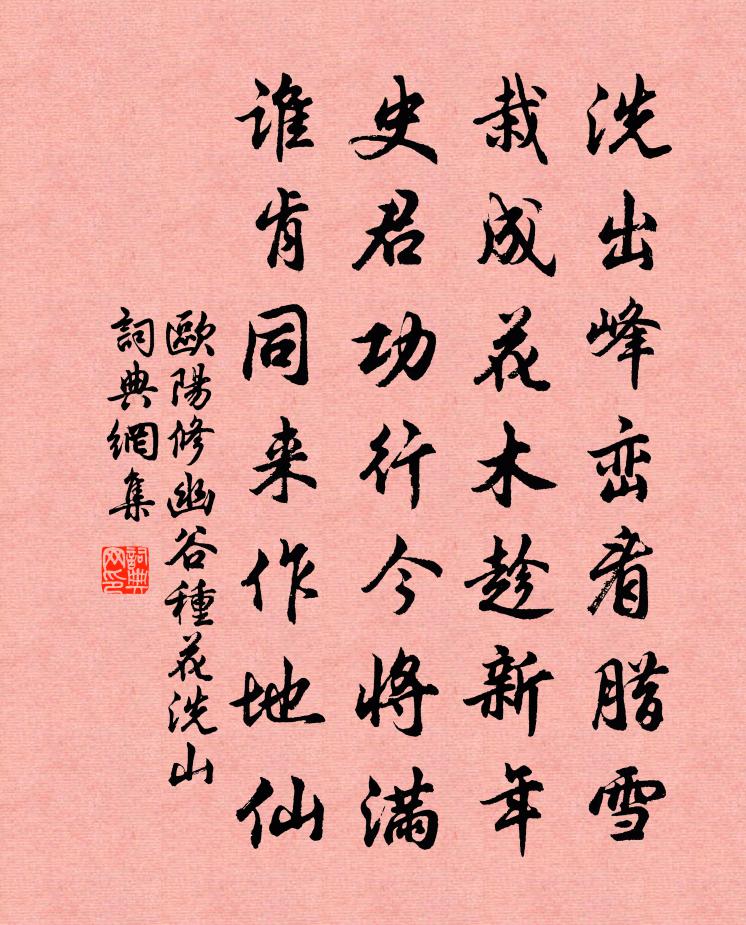 洗出峰峦看腊雪
栽成花木趁新年
史君功行今将满
谁肯同来作地仙
歐陽修幽谷種花洗山
詞典網集
詞典網印